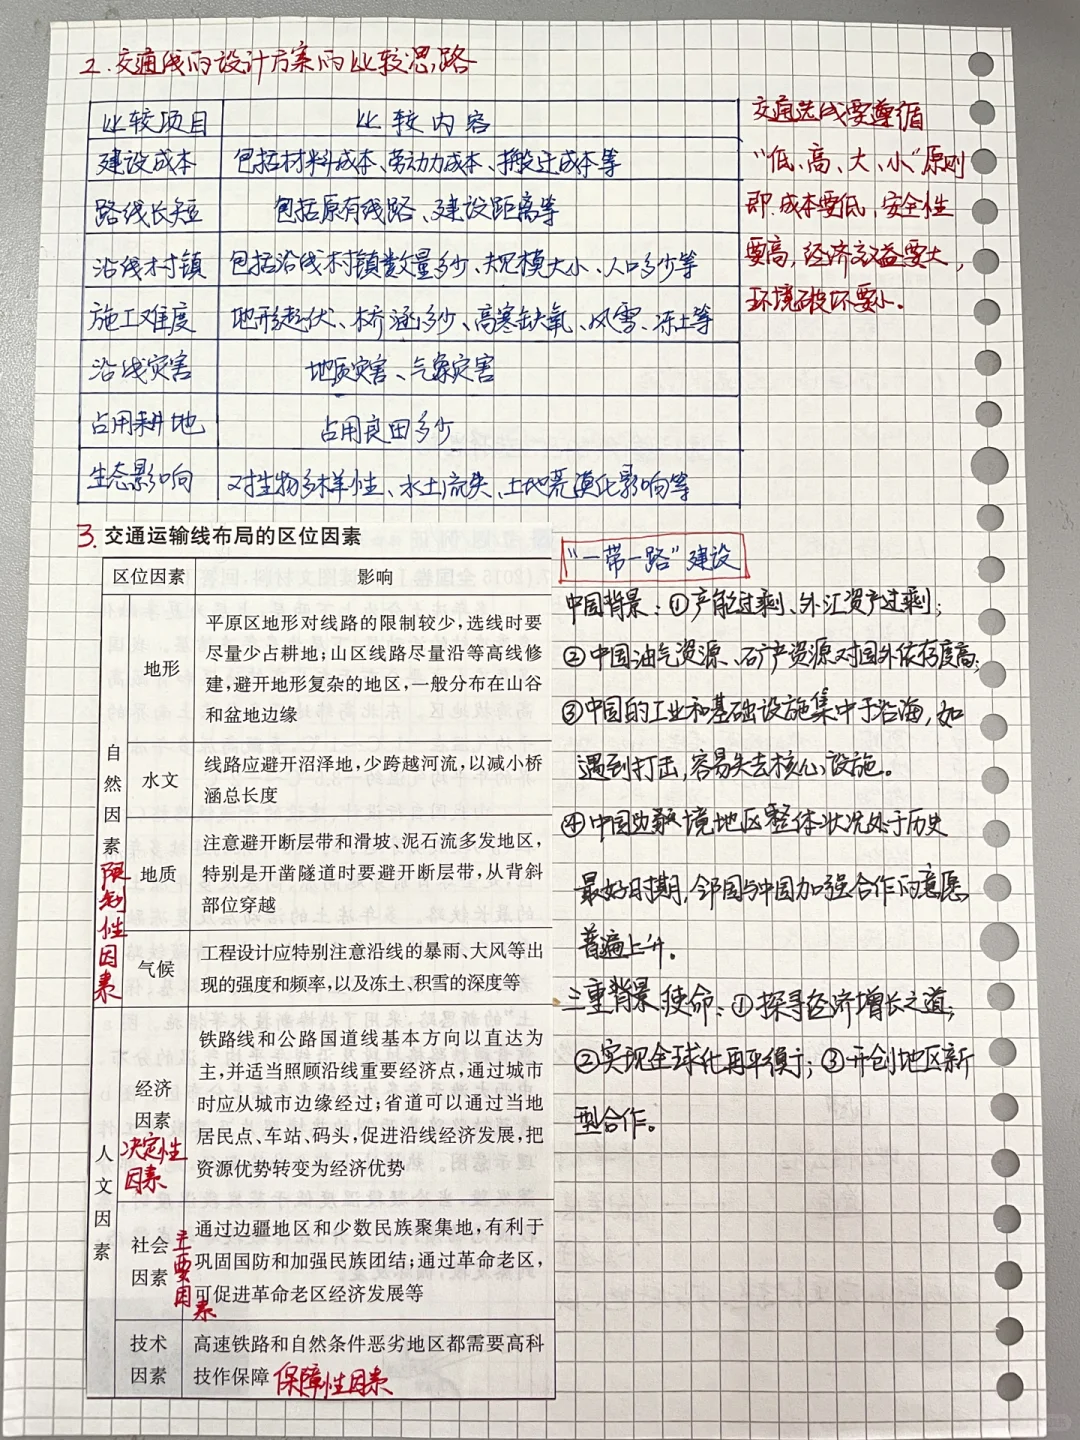 2.交通线的设计方案的比较思路
比较项目 比较内容
建设成本 包括材料成本、劳动力成本、搬迁成本等
路线长短 包括原有线路、建设距离等
沿线村镇 包括沿线村镇数量多少、规模大小、人口多少等
施工难度 地形起伏、桥涵多少、高寒缺氧、风雪、冻土等
沿线灾害 地质灾害、气象灾害
占用耕地 占用良田多少
生态影响 对生物多样性、水土流失、土地荒漠化影响等
交通选线要遵循
“低、高、大、小”原则
即.成本要低,安全性
要高,经济效益要大,
环境破坏要小。
3.交通运输线布局的区位因素
区位因素 影响
自然因素
限制性因素
地形
平原区地形对线路的限制较少,选线时要
尽量少占耕地;山区线路尽量沿等高线修
建,避开地形复杂的地区,一般分布在山谷
和盆地边缘
水文
线路应避开沼泽地,少跨越河流,以减小桥
涵总长度
地质
注意避开断层带和滑坡、泥石流多发地区,
特别是开凿隧道时要避开断层带,从背斜
部位穿越
气候
工程设计应特别注意沿线的暴雨、大风等出
现的强度和频率,以及冻土、积雪的深度等
人文因素
经济
因素
决定性
因素
铁路线和公路国道线基本方向以直达为
主,并适当照顾沿线重要经济点,通过城市
时应从城市边缘经过;省道可以通过当地
居民点、车站、码头,促进沿线经济发展,把
资源优势转变为经济优势
社会
因素
主要因素
通过边疆地区和少数民族聚集地,有利于
巩固国防和加强民族团结;通过革命老区,
可促进革命老区经济发展等
技术
因素
高速铁路和自然条件恶劣地区都需要高科
技作保障 保障性因素
“一带一路”建设
中国背景:①产能过剩、外汇资产过剩;
②中国油气资源、矿产资源对国外依存度高;
③中国的工业和基础设施集中于沿海,如
遇到打击,容易失去核心设施。
④中国边境地区整体状况处于历史
最好时期,邻国与中国加强合作的意愿
普遍上升。
三重背景使命:①探寻经济增长之道;
②实现全球化再平衡;③开创地区新
型合作。